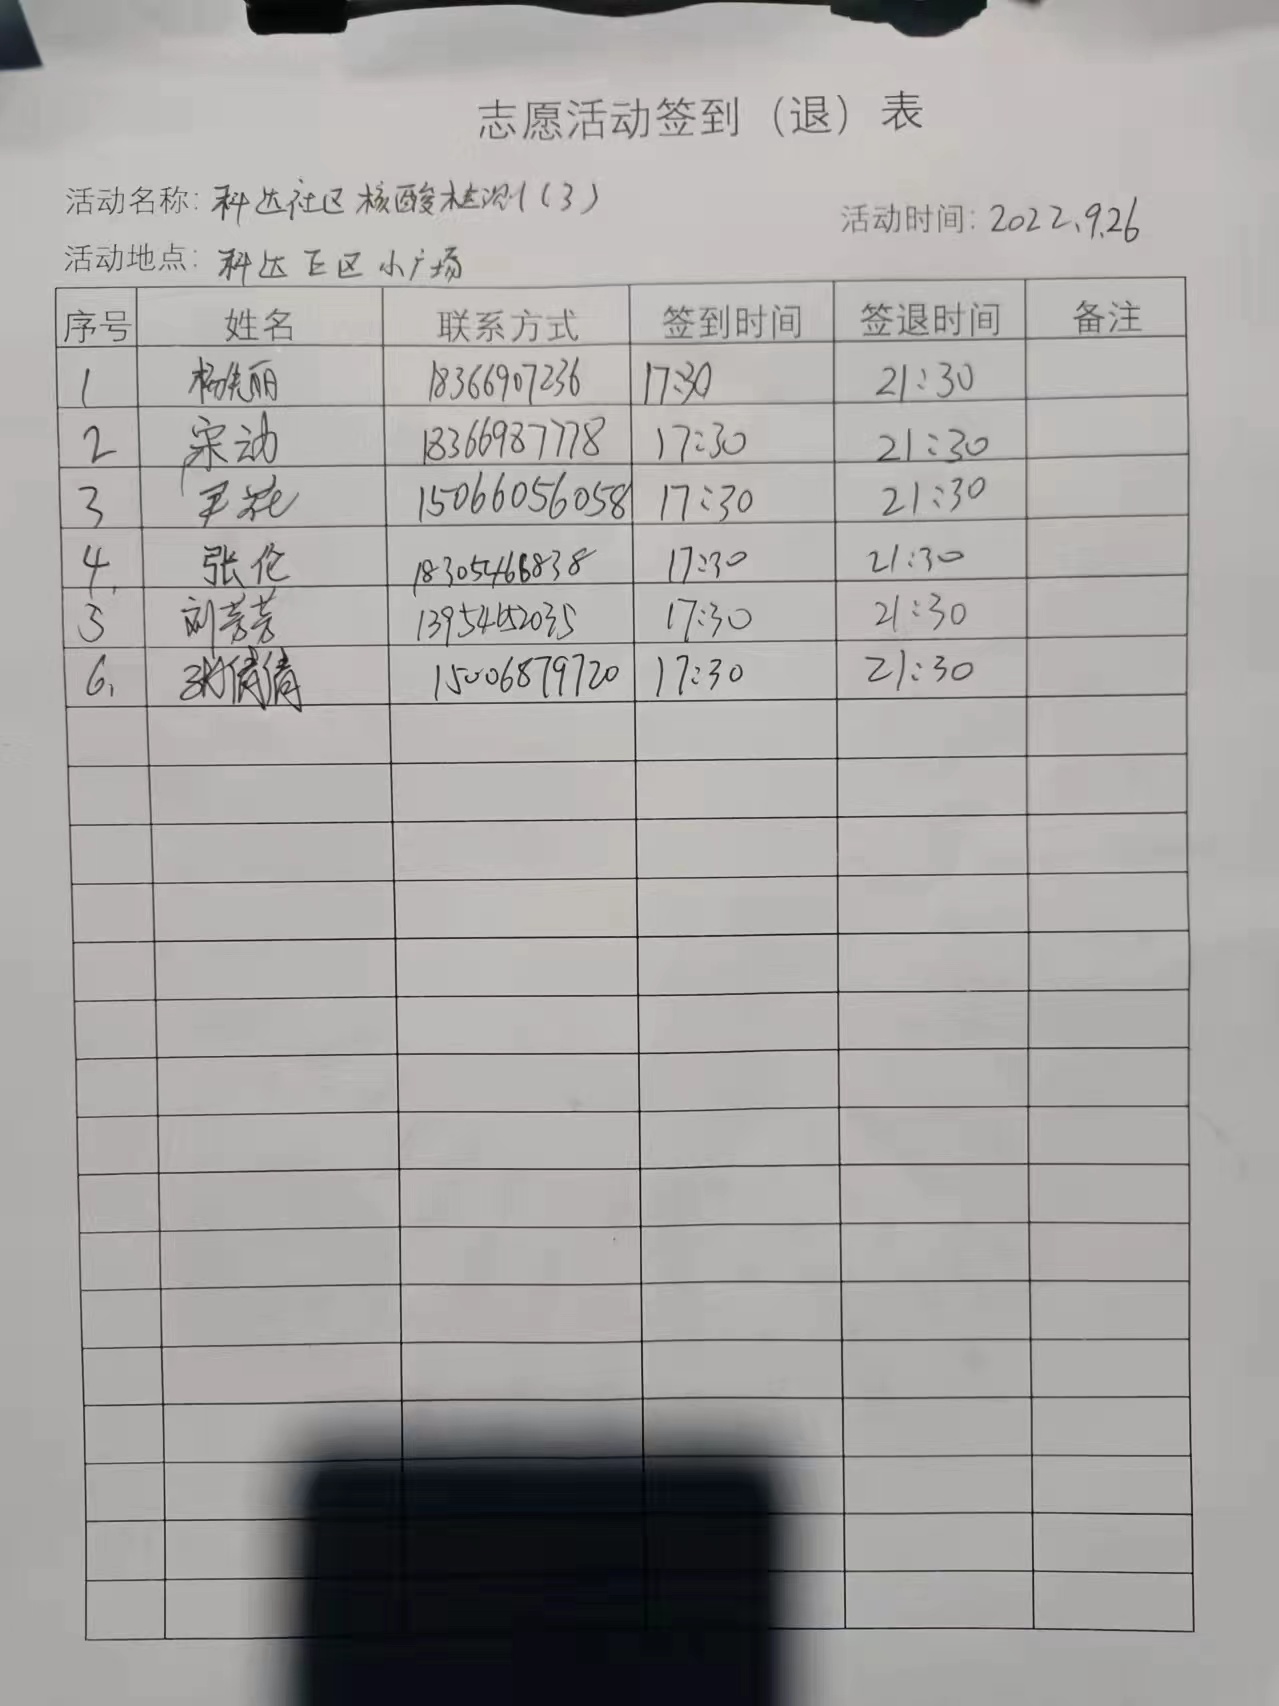 志愿活动签到（退）表
活动名称：科达社区核酸检测（3）
活动时间：2022.9.26
活动地点：科达 区 小广场
序号 姓名 联系方式 签到时间 签退时间 备注
1 杨先丽 18366907236 17:30 21:30
2 宋动 18366987778 17:30 21:30
3 15066056058 17:30 21:30
4. 张伦 18305466838 17:30 21:30
5 刘芳芳 17:30 21:30
6. 倩倩 15006879720 17:30 21:30